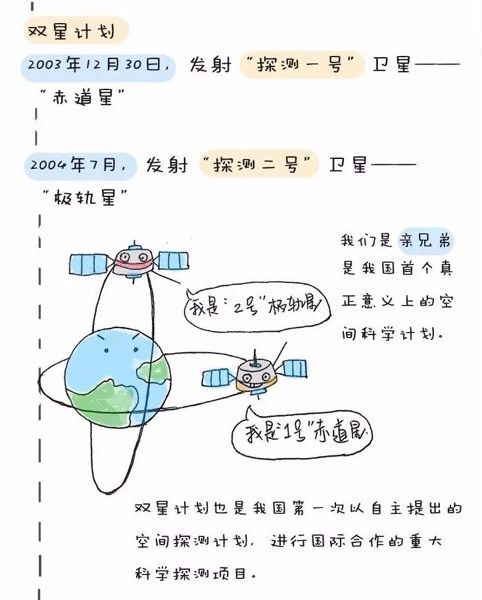 双星计划
2003年12月30日，发射“探测一号”卫星——
“赤道星”
2004年7月，发射“探测二号”卫星——
“极轨星”
我们是亲兄弟
是我国首个真
正意义上的空
间科学计划．
我是“2号”极轨星
我是“1号”赤道星
双星计划也是我国第一次以自主提出的
空间探测计划，进行国际合作的重大
科学探测项目．